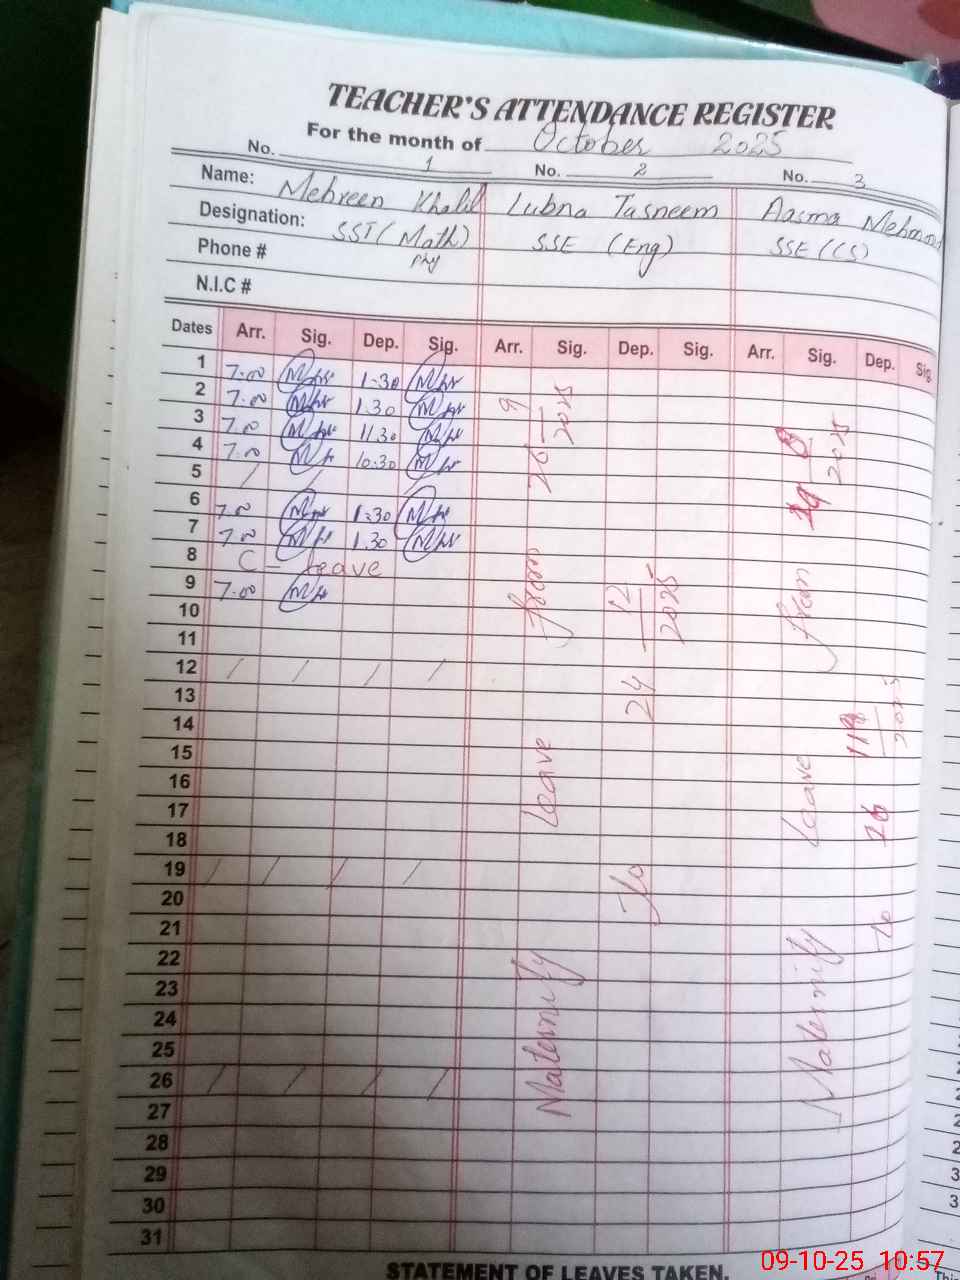 TEACHER'S ATTENDANCE REGISTER
For the month of October 2025
No. 1 No. 2 No. 3
Name: Mehreen Khalil Lubna Tasneem Aasma Mehmood
Designation: SST (Math) SSE (Eng) SSE (CS)
Phy
Phone #
N.I.C #
Dates Arr. Sig. Dep. Sig. Arr. Sig. Dep. Sig. Arr. Sig. Dep. Sig.
1 7.00 1.30
2 7.00 1.30
3 7.00 11.30
4 7.00 10.30
5 / / /
6 7.00 1.30
7 7.00 1.30
8 C - leave
9 7.00
10
11
12 / / / /
13
14
15
16
17
18
19 / / / /
20
21
22
23
24
25
26 / / / /
27
28
29
30
31
Maternity leave from 26 9 2025
To 24 12 2025
Maternity leave from 8 2025
To 26 11 2025
STATEMENT OF LEAVES TAKEN.
09-10-25 10:57